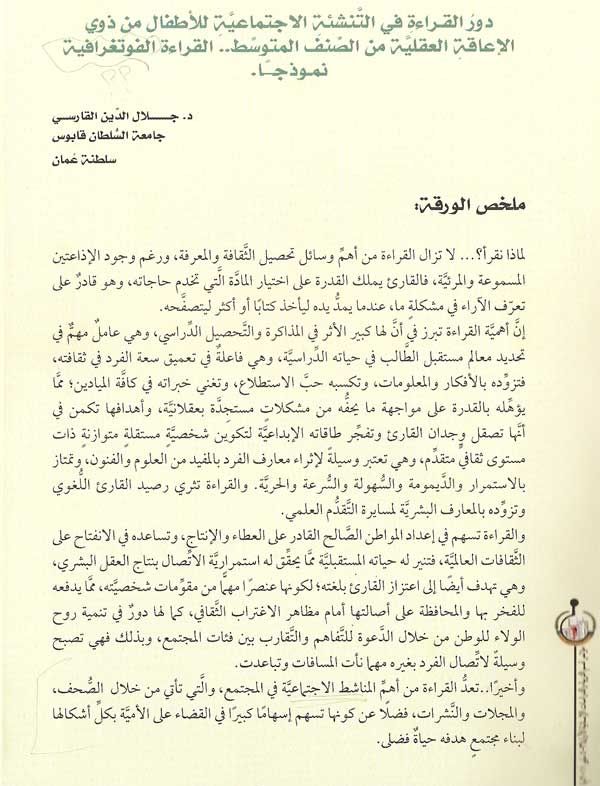 دورُ القراءةِ في التَّنشئةِ الاجتماعيَّة للأطفال من ذوي
الإعاقةِ العقليَّة من الصّنف المتوسّط.. القراءة الفوتغرافية
نموذجـًـا.
د. جـــلال الدّين القارسي
جامعة السُلطان قابوس
سلطنة عُمان
ملخص الورقة:
لماذا نقرأ؟... لا تزال القراءة من أهمِّ وسائل تحصيل الثَّقافة والمعرفة، ورغم وجود الإذاعتين
المسموعة والمرئيَّة، فالقارئ يملك القدرة على اختيار المادَّة الَّتي تخدم حاجاته، وهو قادرٌ على
تعرّف الآراء في مشكلةٍ ما، عندما يمدُّ يده ليأخذ كتابًا أو أكثر ليتصفَّحه.
إنَّ أهميَّة القراءة تبرز في أنَّ لها كبير الأثر في المذاكرة والتَّحصيل الدِّراسي، وهي عاملٌ مهمٌّ في
تحديد معالم مستقبل الطَّالب في حياته الدِّراسيَّة، وهي فاعلةٌ في تعميق سعة الفرد في ثقافته،
فتزوِّده بالأفكار والمعلومات، وتكسبه حبَّ الاستطلاع، وتغني خبراته في كافَّة الميادين؛ ممَّا
يؤهِّله بالقدرة على مواجهة ما يحفُّه من مشكلاتٍ مستجدَّة بعقلانيَّة، وأهدافها تكمن في
أنَّها تصقل وجدان القارئ وتفجِّر طاقاته الإبداعيَّة لتكوين شخصيَّةٍ مستقلةٍ متوازنةٍ ذات
مستوى ثقافيٍّ متقدِّم، وهي تعتبر وسيلةً لإثراء معارف الفرد بالمفيد من العلوم والفنون، وتمتاز
بالاستمرار والدَّيمومة والسُّهولة والسُّرعة والحريَّة. والقراءة تثري رصيد القارئ اللُّغوي
وتزوِّده بالمعارف البشريَّة لمسايرة التَّقدُّم العلمي.
والقراءة تسهم في إعداد المواطن الصَّالح القادر على العطاء والإنتاج، وتساعده في الانفتاح على
الثَّقافات العالميَّة، فتنير له حياته المستقبليَّة ممَّا يحقِّق له استمراريَّة الاتِّصال بنتاج العقل البشري،
وهي تهدف أيضًا إلى اعتزاز القارئ بلغته؛ لكونها عنصرًا مهمًّا من مقوِّمات شخصيَّته، ممَّا يدفعه
للفخر بها والمحافظة على أصالتها أمام مظاهر الاغتراب الثَّقافي، كما لها دورٌ في تنمية روح
الولاء للوطن من خلال الدَّعوة للتَّفاهم والتَّقارب بين فئات المجتمع، وبذلك فهي تصبح
وسيلةً لاتِّصال الفرد بغيره مهما نأت المسافات وتباعدت.
وأخيرًا..تعدُّ القراءة من أهمِّ المناشط الاجتماعيَّة في المجتمع، والَّتي تأتي من خلال الصُّحف،
والمجلات والنَّشرات، فضلًا عن كونها تسهم إسهامًا كبيرًا في القضاء على الأميَّة بكلِّ أشكالها
لبناء مجتمعٍ هدفه حياةٌ فضلى.